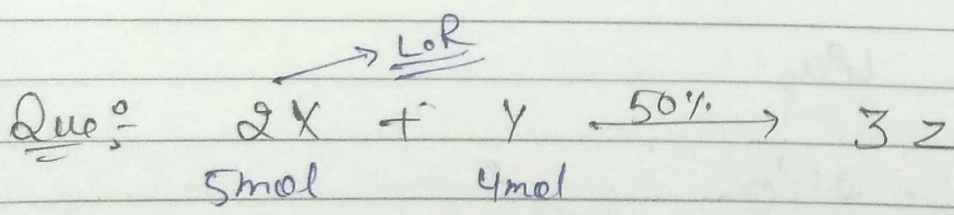 LOR
Que:- 2X + Y 50% → 3z
5mol 4mol